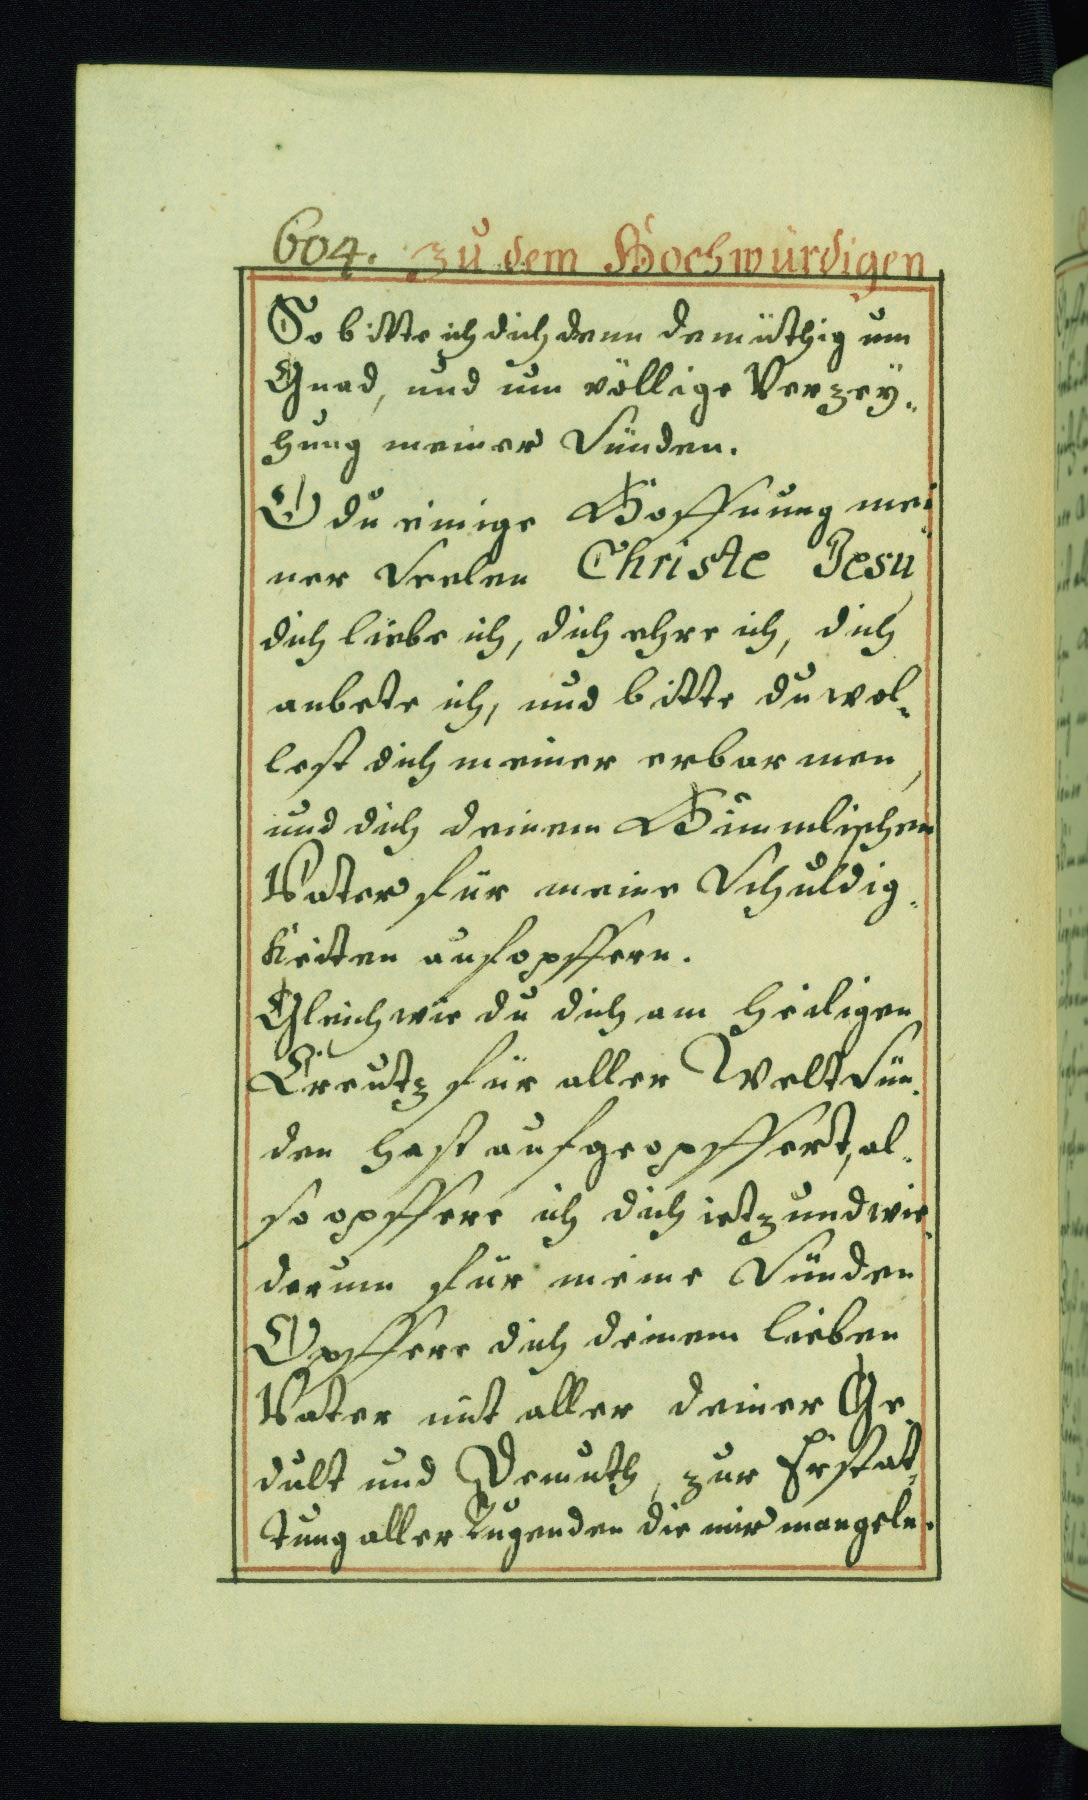 604. zu dem Hochwürdigen
So bitte ich dich denn demüthig um
Gnad, und um völlige Verzey¬
hung meiner Sünden.
O du einige Hoffnung mei¬
ner Seelen Christe Jesu,
dich liebe ich, dich ehre ich, dich
anbete ich, und bitte du wol¬
lest dich meiner erbarmen,
und dich deinem Himmlischen
Vater für meine Schuldig¬
keiten aufopffern.
Gleich wie du dich am heiligen
Creutz für aller Welt Sün¬
den hast aufgeopffert, al¬
so opffere ich dich ietzund wie¬
derum für meine Sünden
Opffere dich deinem lieben
Vater mit aller deiner Ge¬
dult und Demuth, zur Erstat¬
tung aller Tugenden die mir mangeln.